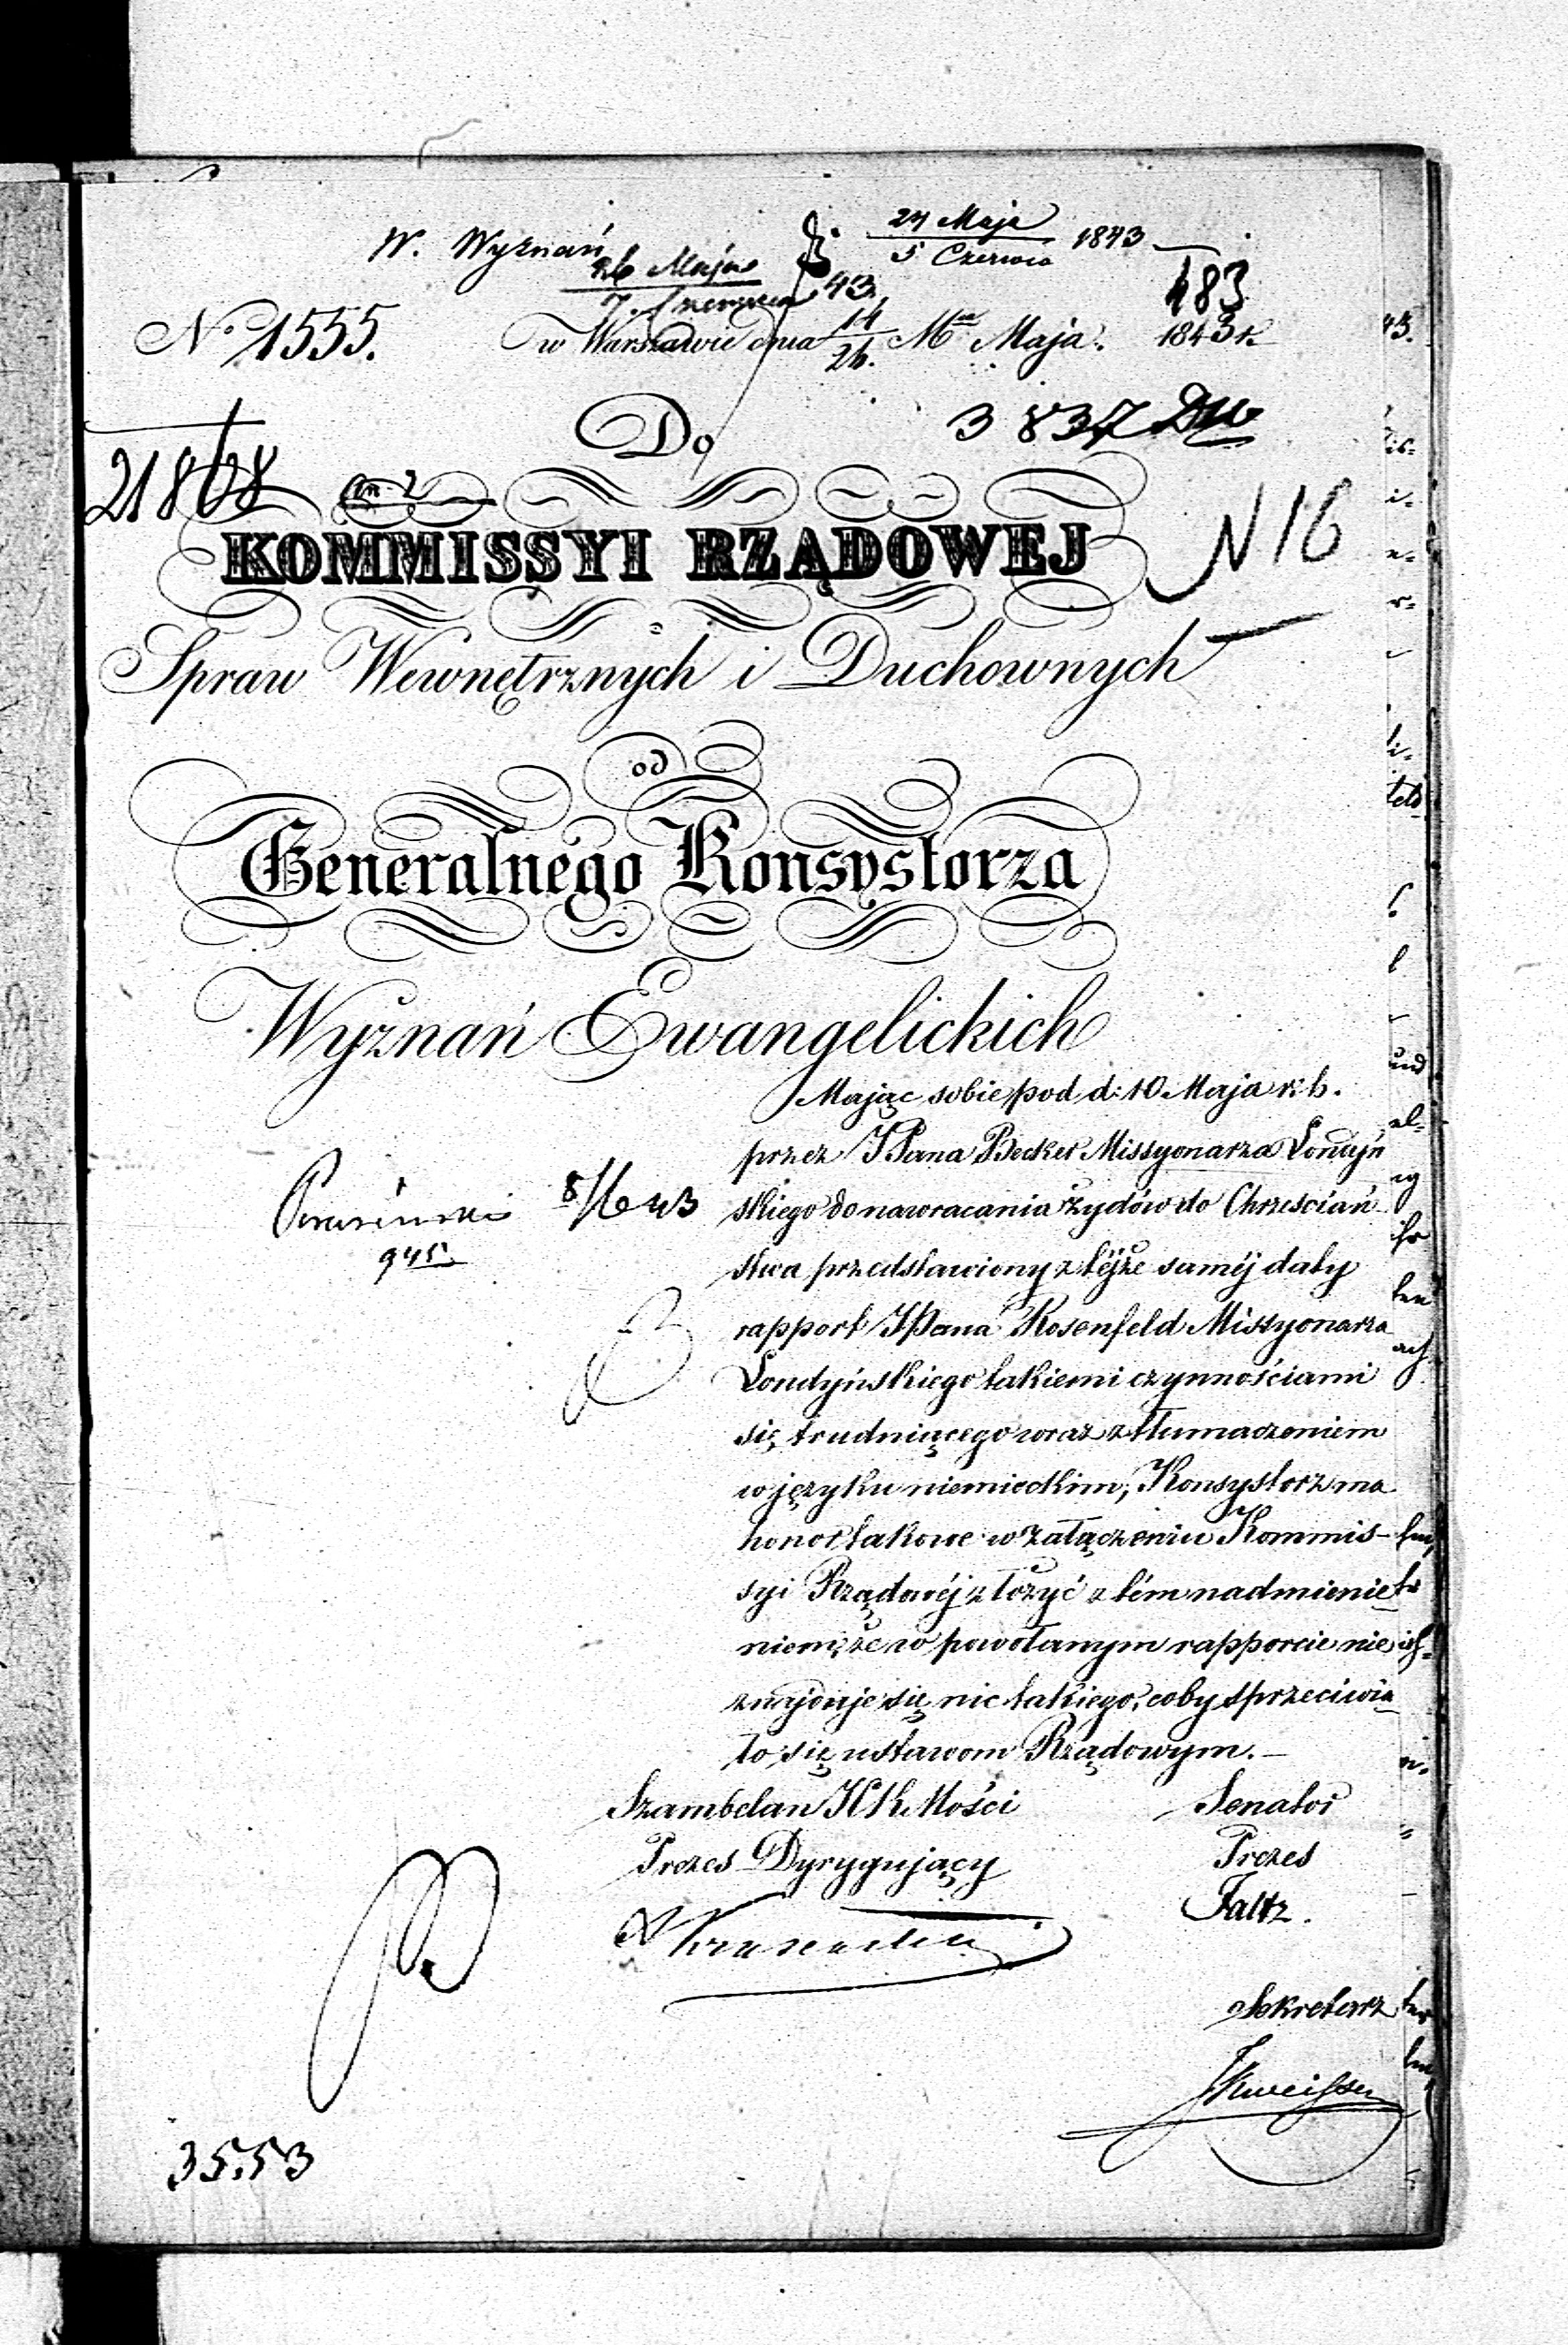 W. Wyznań
24 Maja 1843
5 Czerwca
26 Maja 43
7. Czerwca
183
No 1555.
w Warszawie dnia 14/26. Mca Maja. 1843 r.
Do
3837
N 16
KOMMISSYI RZĄDOWEJ
Spraw Wewnętrznych i Duchownych
od
Generalnego Konsystorza
Wyznań Ewangelickich
Mając sobie pod d: 10 Maja r: b.
przez JPana Becker Missyonarza Londyń
skiego do nawracania żydów do Chrześciań
stwa przedstawiony z téjże saméj daty
rapport JPana Rosenfeld Missyonarza
Londyńskiego takiemi czynnościami
się trudniącego wraz z tłumaczeniem
w języku niemieckim, Konsystorz ma
honor takowe w załączeniu Kommis-
syi Rządowéj złożyć z tém nadmienie
niem, że w powołanym rapporcie nie
znajduje się nic takiego, coby sprzeciwia
ło się ustawom Rządowym.—
8/6 43
945
Szambelan JKMości
Prezes Dyrygujący
Senator
Prezes
Faltz.
Sekretarz
3553